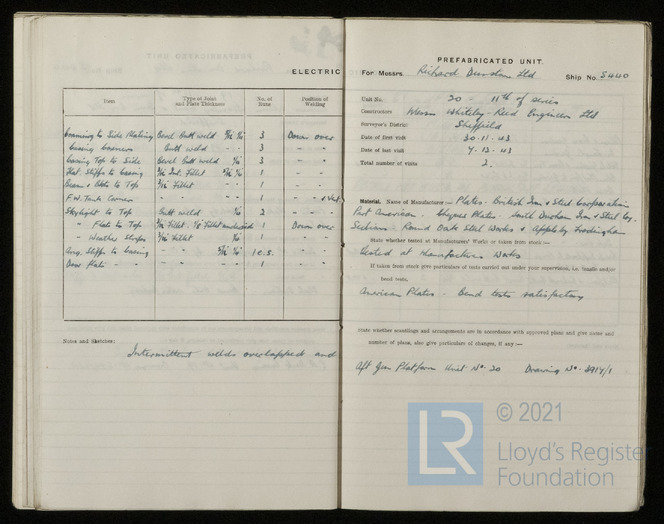 ELECTRIC
Item
Type of Joint and Plate Thickness
No. of Runs
Position of Welding
Coaming to Side Plating Bevel Butt weld 5/16 1/4 3 Down over
Casing Corners Butt weld - 3 - -
Casing Top to Side Bevel Butt weld 1/4 3 - -
Flat Stiffrs to Casing Int. Fillet 1 - -
Beam & Bkts to Top Fillet - 1 - -
F.W. Tank Corner - - 1 - & Vert
Skylight to Top Butt weld 1/4 2 - -
" Flats to Top Fillet 1 Down over
" Weather Strips Fillet 1/4 1 - -
Ang. Stiffrs to Casing - - 1 e.s. - -
Door Plate - - - 1 - -
Notes and Sketches:
Intermittent welds overlapped and
PREFABRICATED UNIT.
For Messrs. Richard Dunston Ltd Ship No. S440
Unit No. 20 - 11th of series
Constructors Messrs Whiteley-Reed Engineers Ltd
Surveyor's District Sheffield
Date of first visit 30.11.43
Date of last visit 7.12.43
Total number of visits 2.
Material. Name of Manufacturer:— Plates - British Iron & Steel Corporation
Part American. Plates - South Durham Iron & Steel Co.
Sections - Round Oak Steel Works & Appleby Frodingham
State whether tested at Manufacturers' Works or taken from stock:—
Tested at Manufacturers Works
If taken from stock give particulars of tests carried out under your supervision, i.e. tensile and/or
bend tests.
American Plates - Bend tests satisfactory
State whether scantlings and arrangements are in accordance with approved plans and give name and
number of plan, also give particulars of changes, if any:—
Aft Gun Platform Unit No. 20 Drawing No. 2914/1
© 2021
LR
Lloyd's Register
Foundation